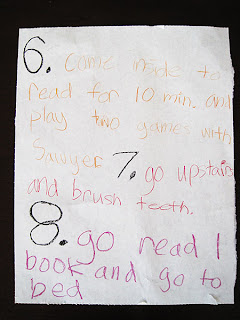 6. Came inside to
read for 10 min. and
play two games with
Sawyer 7. go upstairs
and brush teeth.
8. go read 1
book and go to
bed